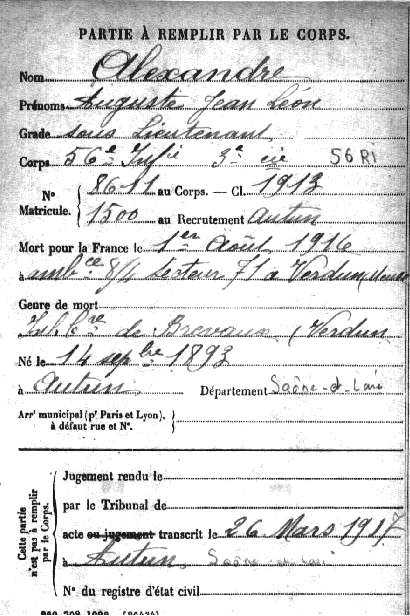 PARTIE À REMPLIR PAR LE CORPS.
Nom Alexandre
Prénoms Auguste Jean Léon
Grade Sous Lieutenant
Corps 56e Inf ie 3e cie 56 RI
No Matricule. 8611 au Corps. — Cl. 1913
1500 au Recrutement Autun
Mort pour la France le 1er Août 1916
à ambce 8/4 Secteur 71 à Verdun Meuse
Genre de mort
de Brevaux (Verdun
Né le 14 sepbre 1893
à Autun Département Saône-et-Loire
Arrt municipal (pr Paris et Lyon).
à défaut rue et No.
Cette partie n'est pas à remplir par le Corps.
Jugement rendu le
par le Tribunal de
acte ou jugement transcrit le 26 Mars 1917
à Autun Saône-et-Loire
No du registre d'état civil